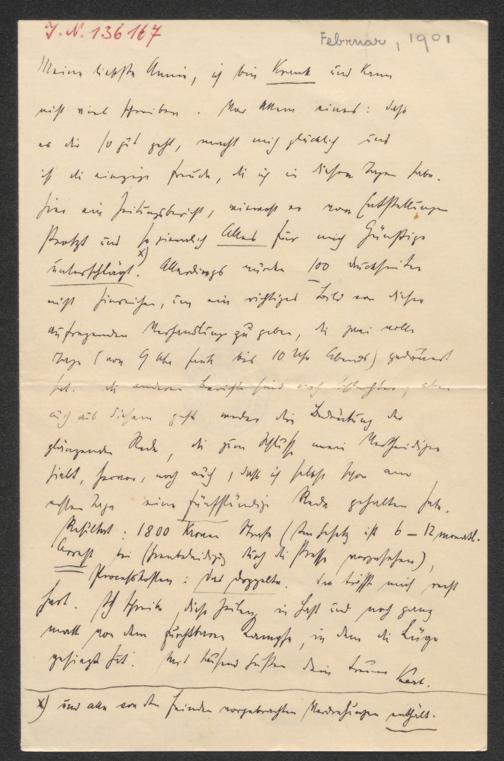 I. N. 136167
Februar, 1901
Meine liebste Annie, ich bin krank und kann
nicht viel schreiben. Vor Allem eines: daß
es Dir so gut geht, macht mich glücklich und
ist die einzige Freude, die ich in diesen Tagen habe.
Hier ein Zeitungsbericht, wiewohl er von Entstellungen
strotzt und so ziemlich Alles für mich Günstige
unterschlägt x). Allerdings würden 100 Druckseiten
nicht hinreichen, um ein richtiges Bild von dieser
aufregenden Verhandlung zu geben, die zwei volle
Tage (von 9 Uhr früh bis 10 Uhr Abends) gedauert
hat. Die anderen Berichte sind noch schlechter, aber
auch aus diesem geht weder die Bedeutung der
glänzenden Rede, die zum Schlusse mein Vertheidiger
hielt, hervor, noch auch, daß ich selbst schon am
ersten Tage eine fünfstündige Rede gehalten habe.
Resultat: 1800 Kronen Strafe (Im Gesetz ist 6–12 monatl.
Arrest bei Ehrenbeleidigung durch die Presse vorgesehen),
Processkosten: das doppelte. Sie trifft mich recht
hart. Ich schreibe, diese Zeilen, in Hast und noch ganz
matt von dem furchtbaren Kampfe, in dem die Lüge
gesiegt hat. Mit tausend Grüßen Dein treuer Karl.
x) und alle von den Feinden vorgebrachten Verdrehungen enthält.